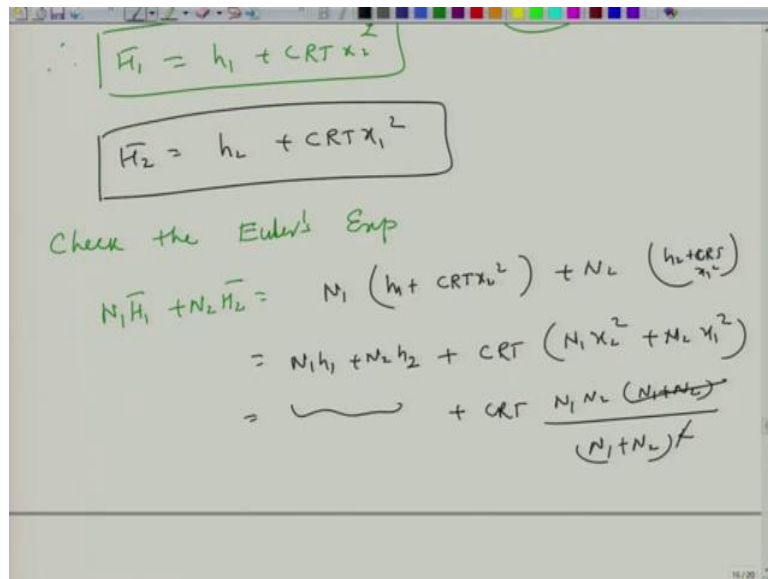 ∴ H̄₁ = h₁ + CRT x₂²
H̄₂ = h₂ + CRT x₁²
Check the Euler's Exp
N₁H̄₁ + N₂H̄₂ = N₁ (h₁ + CRTx₂²) + N₂ (h₂+CRT x₁²)
= N₁h₁ + N₂h₂ + CRT (N₁x₂² + N₂x₁²)
= + CRT N₁N₂ (N₁+N₂) / (N₁+N₂)²
16/20